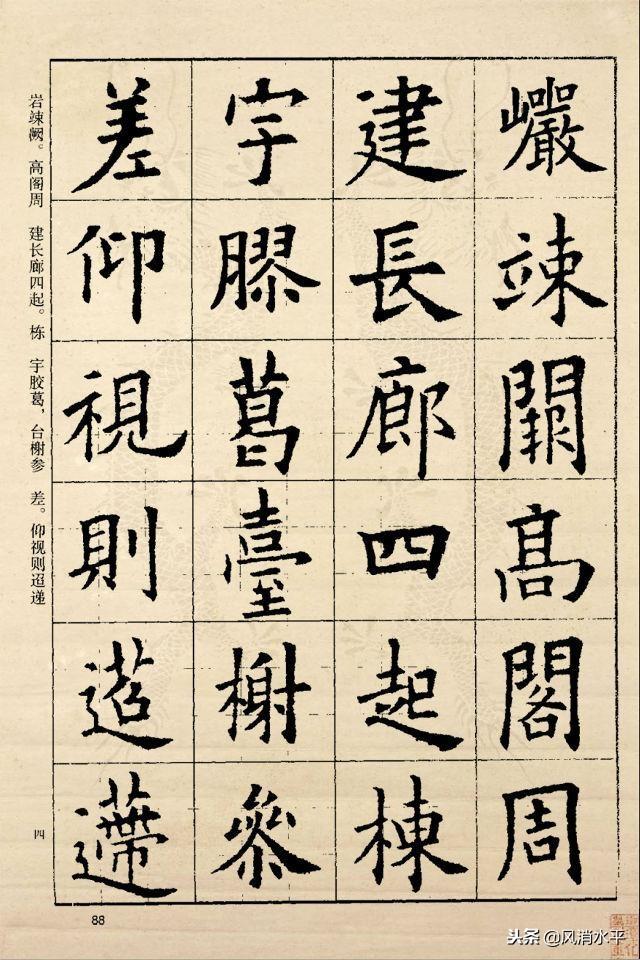 巗竦闕高閣周
建長廊四起棟
宇膠葛臺榭參
差仰視則迢遰
岩竦阙。高阁周 建长廊四起。栋 宇胶葛，台榭参 差。仰视则迢递
四
88
头条 @风消水平